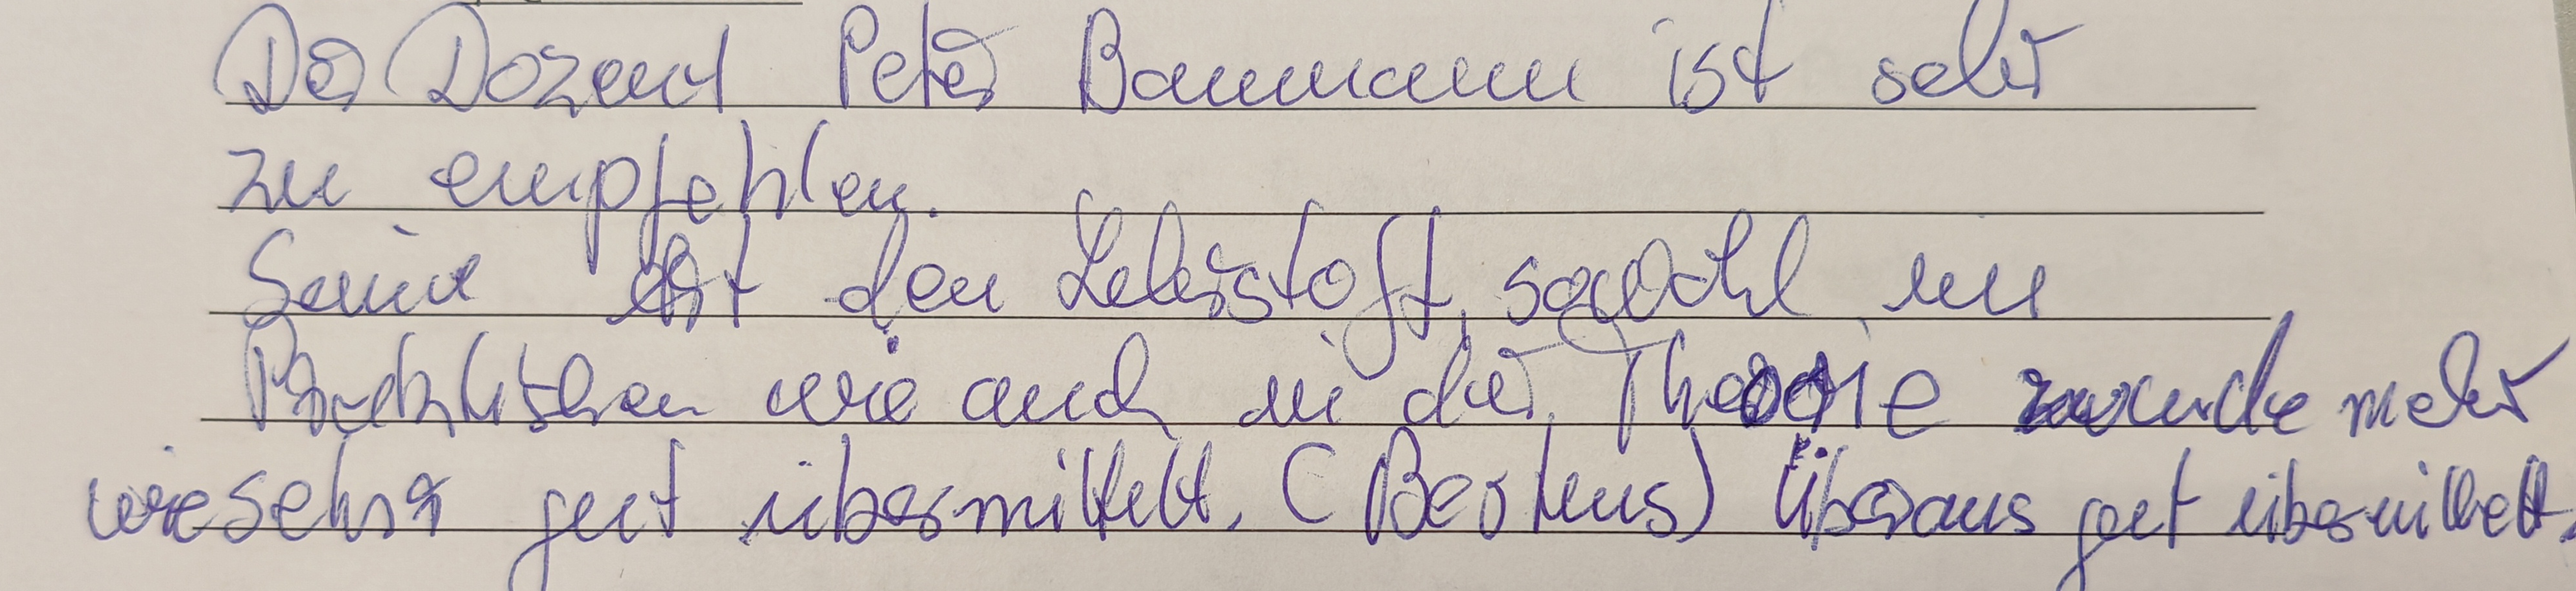 Der Dozent Peter Baumann ist sehr
zu empfehlen.
Seine Art den Lehrstoff, sowohl im
Praktischen wie auch in der Theorie wurde mehr
wie sehr gut übermittelt. (Bestens) Überaus gut übermittelt.